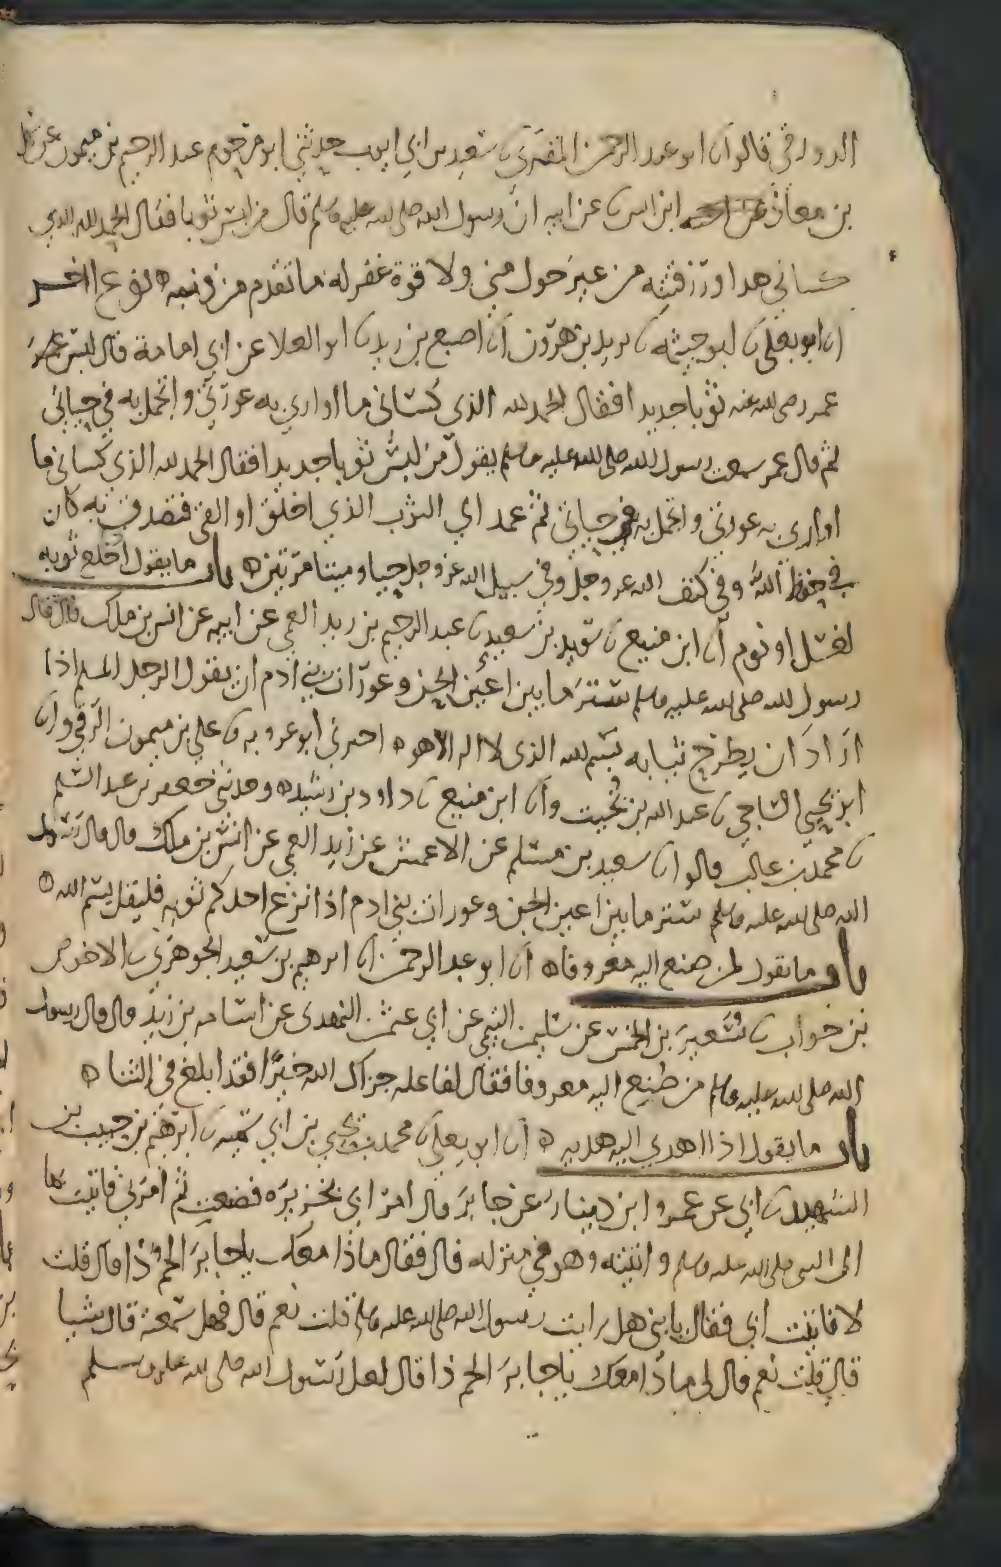 الدورقي قالوا ثنا ابو عبد الرحمن المقرئ ثنا سعيد بن ابي ايوب حدثني ابو مرحوم عبد الرحيم بن ميمون عن سهل
بن معاذ ابن انس عن ابيه ان رسول الله صلى الله عليه وسلم قال من لبس ثوبا فقال الحمد لله الذي
كساني هذا ورزقنيه من غير حول مني ولا قوة غفر له ما تقدم من ذنبه نوع اخر
انا ابو يعلى ثنا ابو خيثمة ثنا يزيد بن هرون انا اصبغ بن زيد ثنا ابو العلا عن ابي امامة قال لبس
عمر رضي الله عنه ثوبا جديدا فقال الحمد لله الذي كساني ما اواري به عورتي واتجمل به في حياتي
ثم قال عمر سمعت رسول الله صلى الله عليه وسلم يقول من لبس ثوبا جديدا فقال الحمد لله الذي كساني ما
اواري به عورتي واتجمل به في حياتي ثم عمد الي الثوب الذي اخلق او القى فتصدق به كان
في حفظ الله وفي كنف الله عز وجل وفي سبيل الله عز وجل حيا وميتا مرتين باب ما يقول اذا خلع ثوبه
لغسل او نوم انا ابن منيع ثنا سويد بن سعيد ثنا عبد الرحيم بن زيد العمي عن ابيه عن انس بن ملك قال قال
رسول الله صلى الله عليه وسلم ستر ما بين اعين الجن وعورات بني ادم ان يقول الرجل المسلم اذا
اراد ان يطرح ثيابه بسم الله الذي لا اله الا هو اخبرني ابو عروبه ثنا علي بن ميمون الرقي وانا
ابن يحيى الساجي ثنا عبد الله بن وانا ابن منيع ثنا داود بن رشيد وحدثني جعفر بن عبد السلم
ثنا محمد بن غالب قالوا ثنا سعيد بن مسلم عن الاعمش عن زيد العمي عن انس بن ملك قال قال رسول
الله صلى الله عليه وسلم ستر ما بين اعين الجن وعورات بني ادم اذا نزع احدكم ثوبه فليقل بسم الله
باب ما يقول لمن صنع اليه معروفا انا ابو عبد الرحمن انا ابرهيم بن سعيد الجوهري ثنا الاحوص
بن جواب ثنا سعير بن الخمس عن سليمن التيمي عن ابي عثمن النهدي عن اسامه بن زيد قال قال رسول
الله صلى الله عليه وسلم من صنع اليه معروفا فقال لفاعله جزاك الله خيرا فقد ابلغ في الثنا
باب ما يقول اذا اهدي اليه هديه انا ابو يعلى ثنا محمد بن يحيى بن ابي سمينه ثنا ابرهيم بن حبيب بن
الشهيد ثنا ابي عن عمرو ابن دينار عن جابر قال امر ابي بخزيره فصنعت ثم امرني فاتيت بها
الى النبي صلى الله عليه وسلم واتيته وهو في منزله قال فقال ماذا معك يا جابر الحم ذا قال قلت
لا فاتيت ابي فقال يا بني هل رايت رسول الله صلى الله عليه وسلم قلت نعم قال فهل سمعته قال شيا
قال قلت نعم قال لي ماذا معك يا جابر الحم ذا قال لعل رسول الله صلى الله عليه وسلم